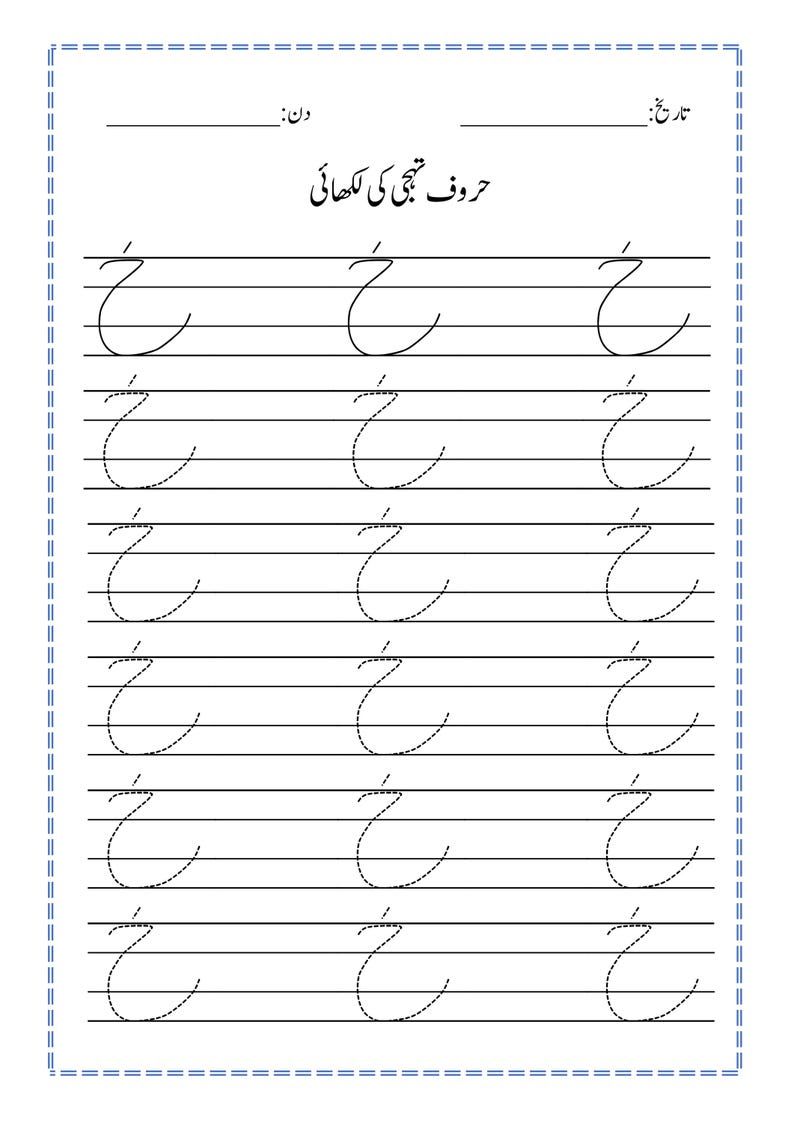 تاریخ:______________ دن:______________
حروف تہجی کی لکھائی
خ خ خ
خ خ خ
خ خ خ
خ خ خ
خ خ خ
خ خ خ